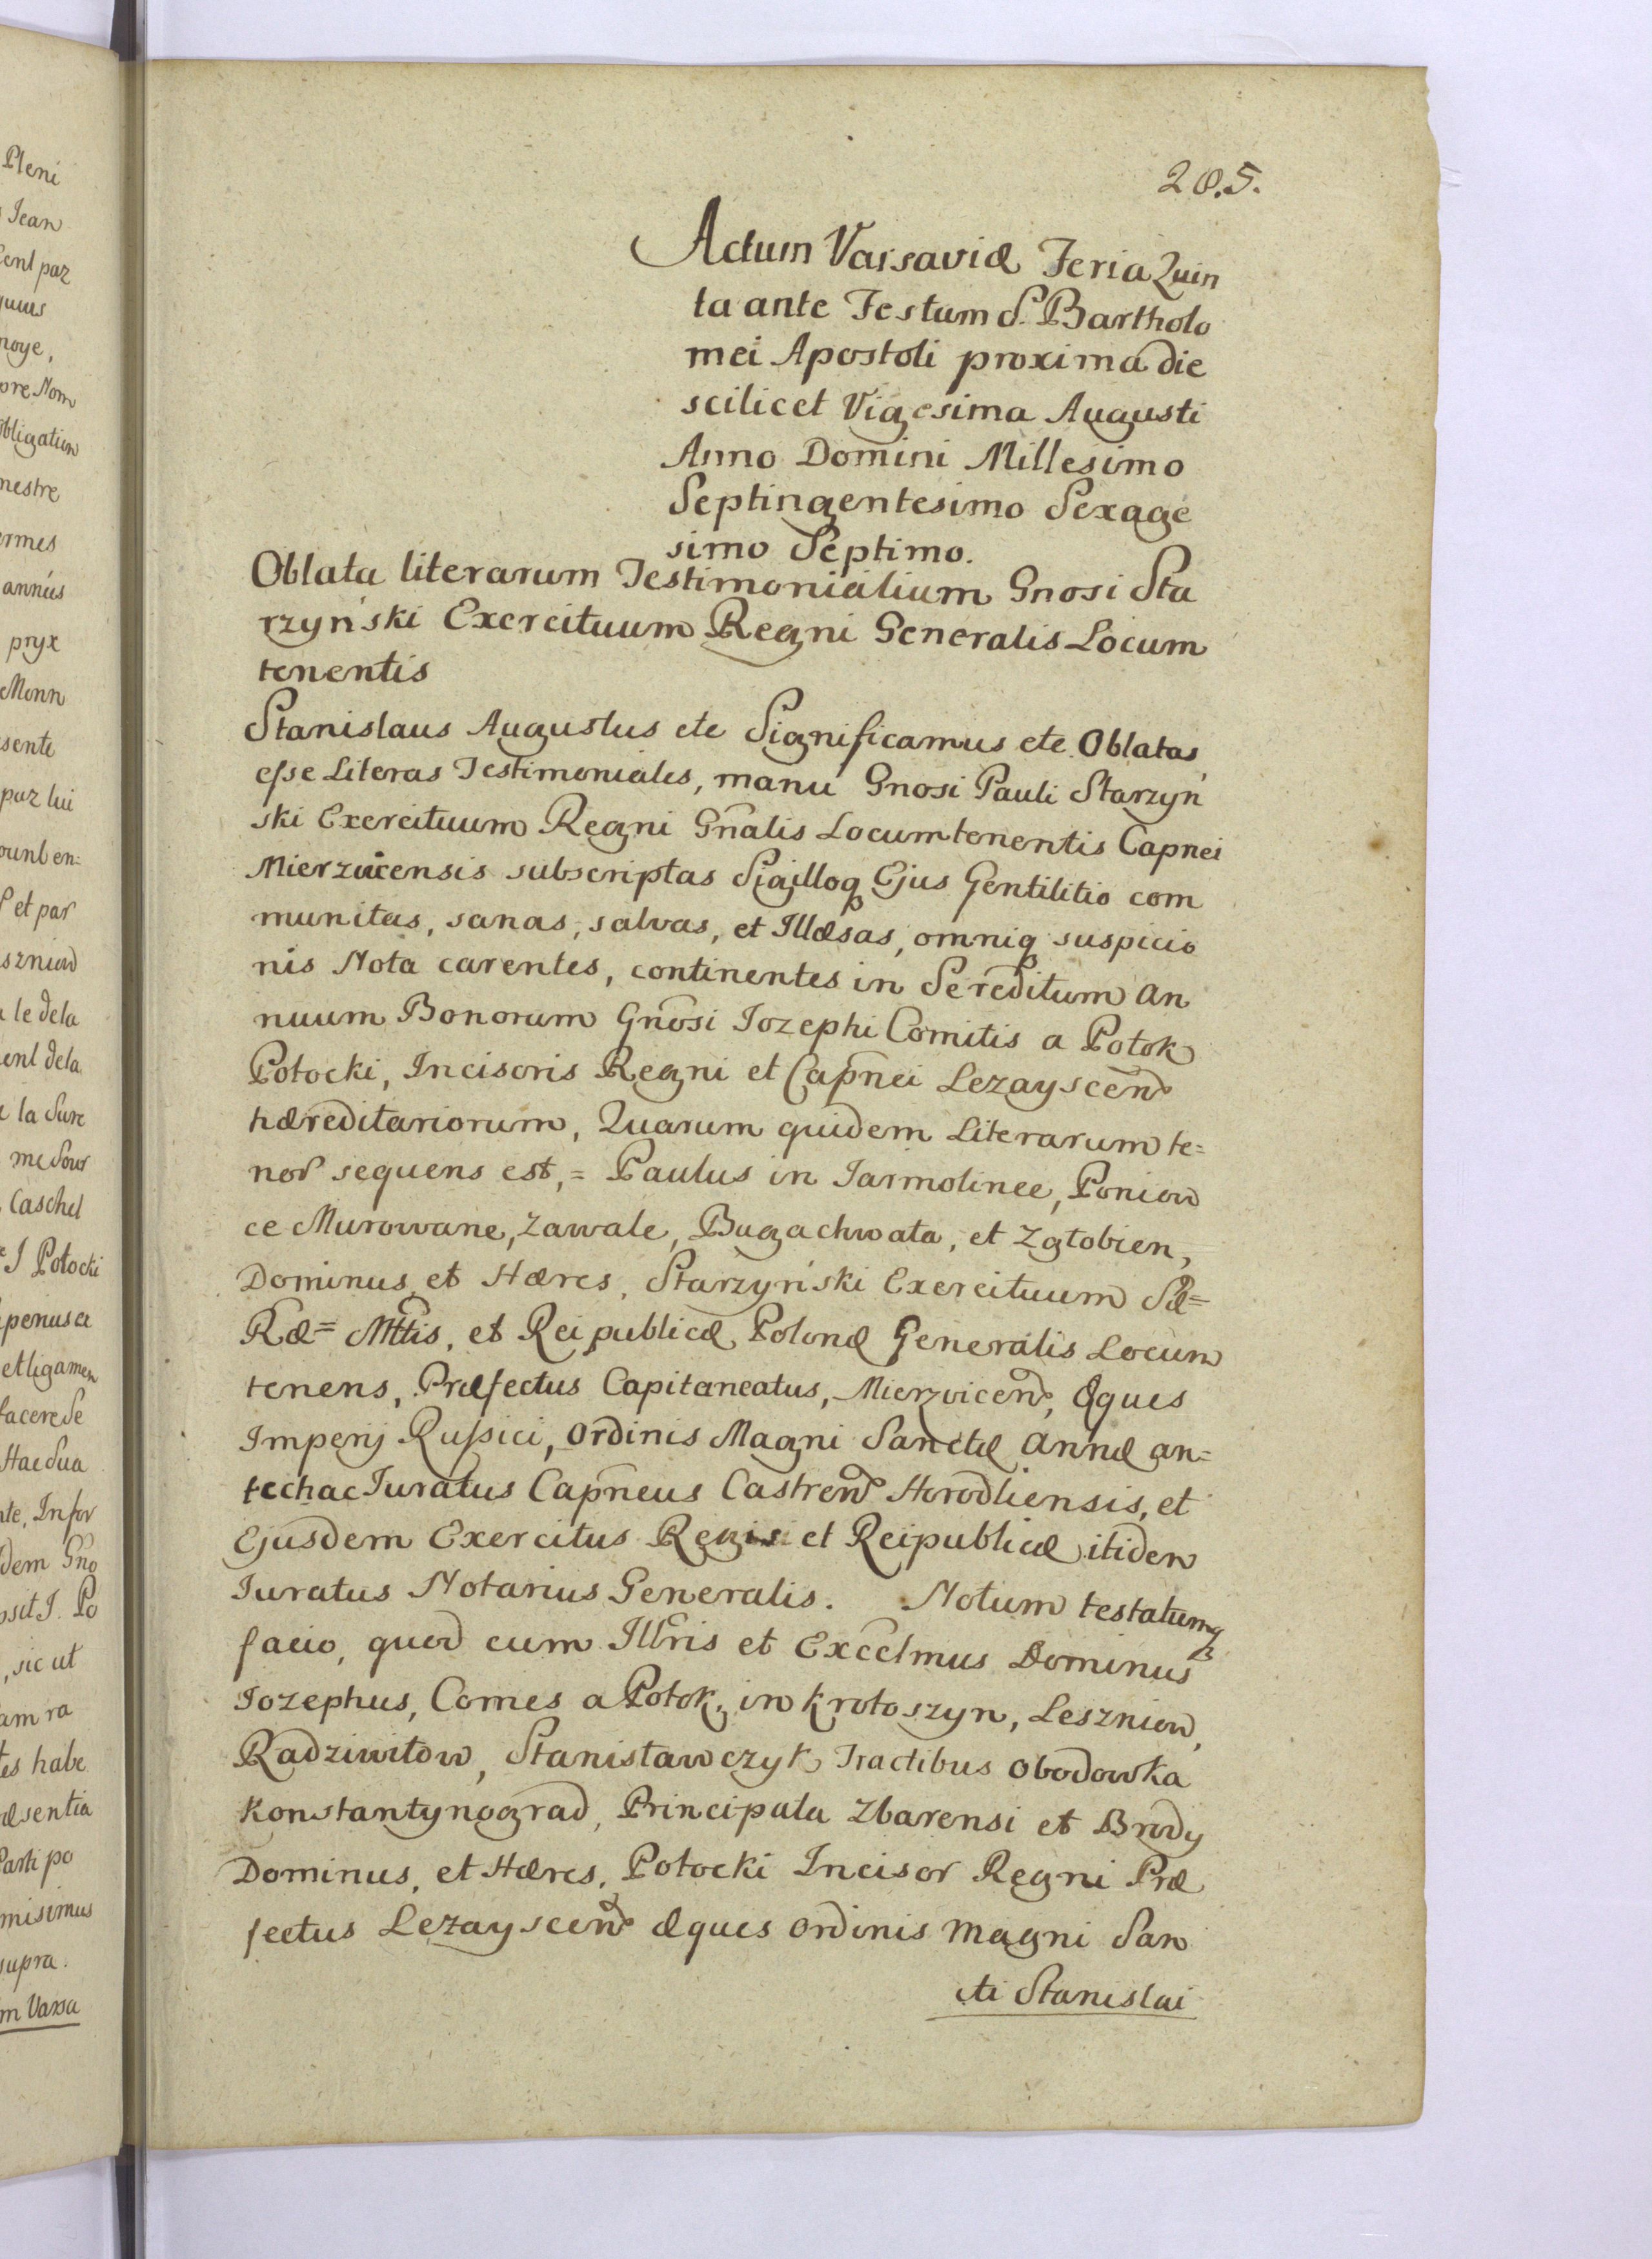 Pleni
Jean
noye,
pre Nom
obligation
mestre
annüs
pryx
Monn
sente
par lui
ount en=
P et par
szniow
le dela
ent dela
la Sure
me Sour
Caschel
J Potocki
penusce
et ligamen
facere Se
Hac Sua
te, Infor
dem Gno
osit J. Po
, sic ut
am ra
tes habe
æsentia
Parti po
misimus
supra.
m Varsa
285.
Actum Varsaviæ Feria Quin
ta ante Festum S. Bartholo
mei Apostoli proxima die
scilicet Vigesima Augusti
Anno Domini Millesimo
Septingentesimo Sexage
simo Septimo.
Oblata literarum Testimonialium Gnosi Sta
rzyński Exercituum Regni Generalis Locum
tenentis
Stanislaus Augustus etc Significamus etc. Oblatas
esse Literas Testimoniales, manu Gnosi Pauli Starzyń
ski Exercituum Regni Gnalis Locumtenentis Capnei
Mierzvicensis subscriptas Sigilloq Ejus Gentilitio com
munitas, sanas, salvas, et Illæsas, omniq suspicio
nis Nota carentes, continentes in Se reditum an
nuum Bonorum Gnosi Iozephi Comitis a Potok
Potocki, Incisoris Regni et Capnei Lezayscen
hæreditariorum, Quarum quidem Literarum te=
nor sequens est,= Paulus in Jarmolince, Poniow
ce Murowane, Zawale, Bugachwata, et Zgtobien,
Dominus et Hæres, Starzyński Exercituum Sæ=
Ræ= Mttis, et Reipublicæ Polonæ Generalis Locum
tenens, Præfectus Capitaneatus, Mierzvicen, Eques
Imperij Russici, Ordinis Magni Sanctæ Annæ an=
techac Iuratus Capneus Castren Horodliensis, et
Ejusdem Exercitus Regis et Reipublicæ itidem
Iuratus Notarius Generalis. Notum testatumq
facio, quod cum Illris et Excelmus Dominus
Iozephus, Comes a Potok, in Krotoszyn, Leszniow,
Radziwitow, Stanistawczyk Tractibus Obodowka
Konstantynograd, Principata Zbarensi et Brody
Dominus, et Hæres, Potocki Incisor Regni Præ
fectus Lezayscen Æques Ordinis Magni San
cti Stanislai